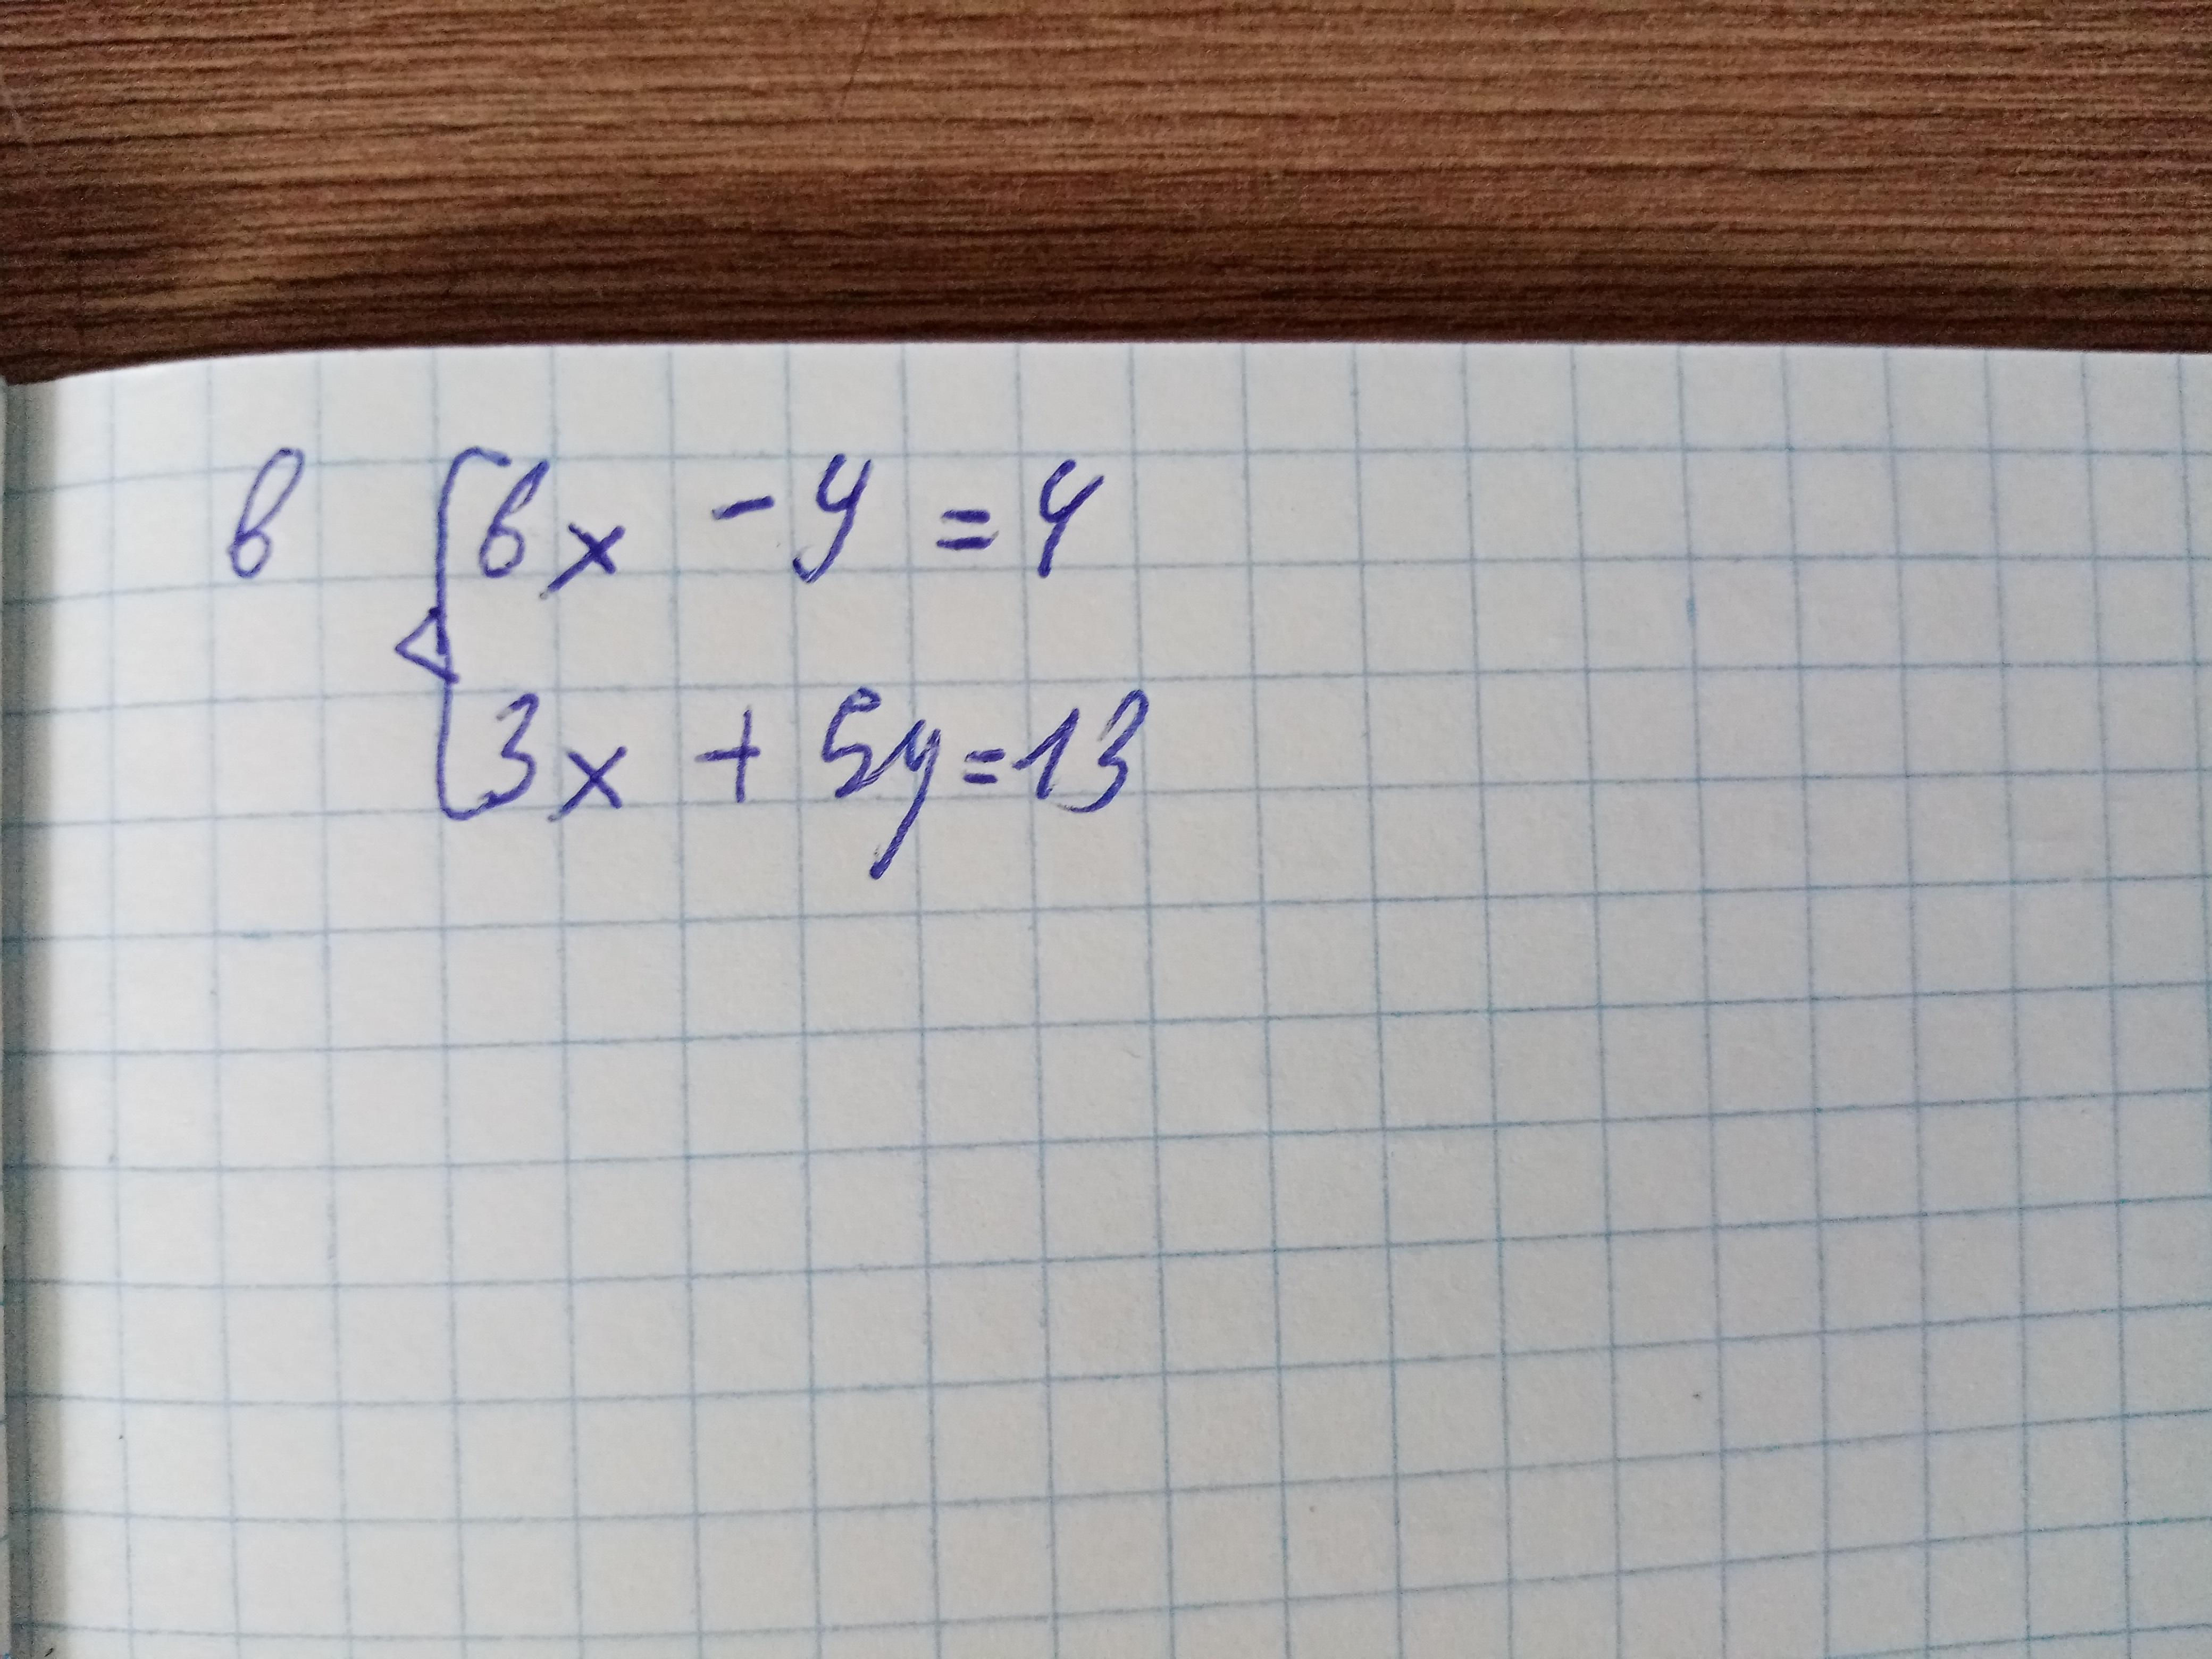 в 6x - y = 4
3x + 5y = 13